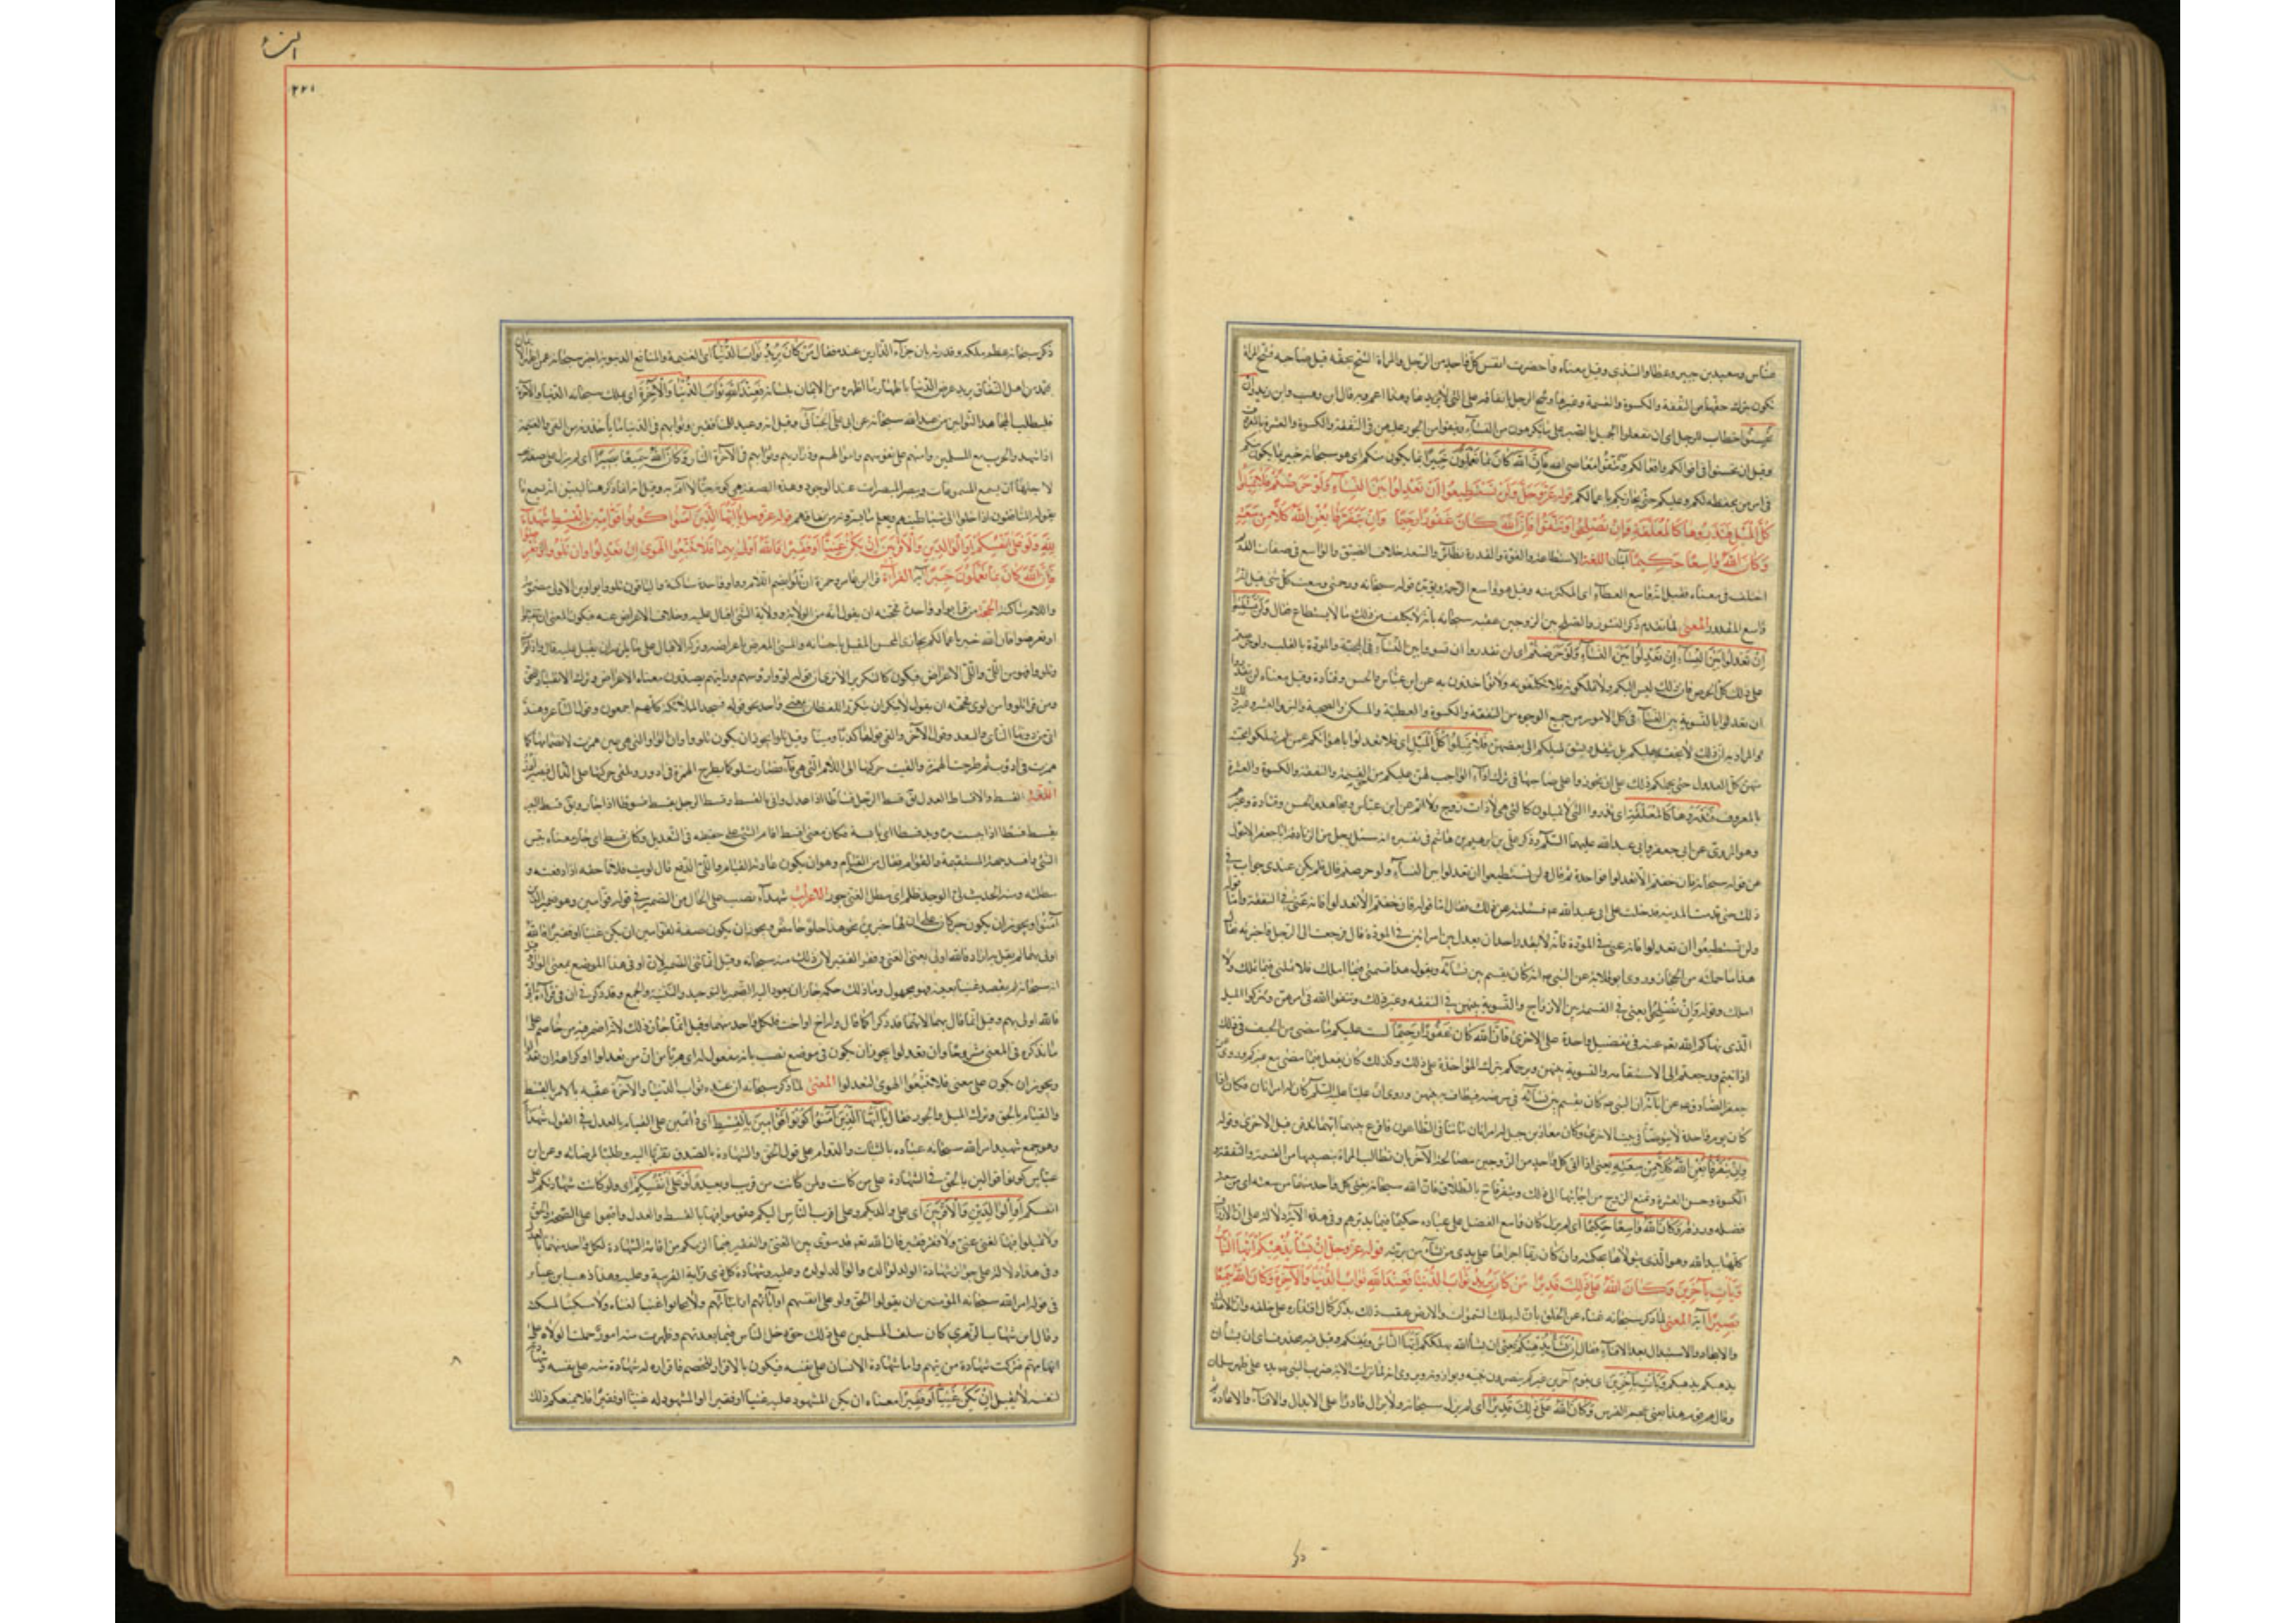 عباس وسعيد بن جبير وعطا والسدي وقيل معناه واحضرت انفس كل واحد من الرجل والمراة الشح بحقه قبل صاحبه فشح المراة
يكون بترك حقها من النفقة والكسوة والقسمة وغيرها وشح الرجل بانفاقه على التي لا يريدها وهذا اعم وبه قال ابن وهب وابن زيد وان
تحسنوا خطاب للرجال اى ان تفعلوا الجميل بالصبر على ما تكرهون من النسآء وتتقوا من الجور عليهن في النفقة والكسوة والعشرة بالمعروف
وقيل ان تحسنوا في اقوالكم وافعالكم وتتقوا معاصى الله فان الله كان بما تعملون خبيرا بما يكون منكم اى هو سبحانه خبير بما يكون منكم
في امرهن يحفظه لكم وعليكم حتى يجازيكم باعمالكم قوله عز وجل ولن تستطيعوا ان تعدلوا بين النسآء ولو حرصتم فلا تميلوا
كل الميل فتذروها كالمعلقة وان تصلحوا وتتقوا فان الله كان غفورا رحيما وان يتفرقا يغن الله كلا من سعته
وكان الله واسعا حكيما آيتان اللغة الاستطاعة والقوة والقدرة نظائر والسعة خلاف الضيق والواسع في صفات الله
اختلف في معناه فقيل انه واسع العطآء اى المكرمة وقيل هو واسع الرحمة ويؤيده قوله سبحانه ورحمتي وسعت كل شئ وقيل انه
واسع المقدور المعنى لما تقدم ذكر النشوز والصلح بين الزوجين عقبه سبحانه بانه لا يكلف من ذلك ما لا يستطاع فقال ولن تستطيعوا
ان تعدلوا بين النسآء ولو حرصتم اى لن تقدروا ان تسووا بين النسآء في المحبة والمودة بالقلب ولو حرصتم
على ذلك كل الحرص فان ذلك ليس اليكم ولا تملكونه فلا تكلفونه ولا تؤاخذون به عن ابن عباس والحسن وقتادة وقيل معناه لن تقدروا
ان تعدلوا بالتسوية بين النسآء في كل الامور من جميع الوجوه من النفقة والكسوة والعطية والمسكن والصحبة والبر والبشر وغير ذلك
فلا تميلوا كل الميل اى فلا تعدلوا باهوائكم عمن لم تملكوا محبة
منهن كل العدول حتى يحملكم ذلك على ان تجوروا على صواحبها في ترك ادآء الواجب لهن عليكم من القسمة والنفقة والكسوة والعشرة
بالمعروف فتذروها كالمعلقة اى تذروا التي لا تميلون اليها كالتي هي لا ذات زوج ولا ايم عن ابن عباس ومجاهد والحسن وقتادة وغيرهم
وهو المروى عن ابي جعفر وابي عبد الله عليهما السلم وذكر على بن ابرهيم بن هاشم في تفسيره انه سئل رجل من الزنادقة ابا جعفر الاحول
عن قوله سبحانه فان خفتم الا تعدلوا فواحدة ثم قال ولن تستطيعوا ان تعدلوا بين النسآء ولو حرصتم قال فلم يكن عندى جواب في
ذلك حتى قدمت المدينة فدخلت على ابى عبد الله فسئلته عن ذلك فقال اما قوله فان خفتم الا تعدلوا فانه عنى في النفقة واما قوله
ولن تستطيعوا ان تعدلوا فانه عنى في المودة فانه لا يقدر احد ان يعدل بين امراتين في المودة قال فرجعت الى الرجل فاخبرته فقال
هذا ما حملته من الحجاز وروى ابو قلابة عن النبي انه كان يقسم بين نسآئه ويقول هذا قسمتي فيما املك فلا تلمني فيما تملك ولا
املك وقوله وان تصلحوا يعنى في القسمة بين الازواج والتسوية بينهن في النفقة وغير ذلك وتتقوا الله في امرهن وتتركوا الميل
الذى نهاكم الله عنه في تفضيل واحدة على الاخرى فان الله كان غفورا رحيما لست عليكم ما مضى من الحيف في ذلك
اذا تبتم ورجعتم الى الاستقامة والتسوية بينهن ويرحمكم بترك المؤاخذة على ذلك وكذلك كان يفعل فيما مضى مع غيركم وروى عن
جعفر الصادق عن ابآئه ان النبي كان يقسم بين نسآئه في مرضه فيطاف به بينهن وروى ان عليا عليه السلم كان له امراتان فكان اذا
كان يوم واحدة لا يتوضأ في بيت الاخرى وكان معاذ بن جبل له امراتان ماتتا في الطاعون فاقرع بينهما ايهما تدفن قبل الاخرى وقوله
وان يتفرقا يغن الله كلا من سعته يعنى اذا ابى كل واحد من الزوجين مصالحة الآخر بان تطالب المراة بنصيبها من القسمة والنفقة و
الكسوة وحسن العشرة ويمتنع الزوج من اجابتها الى ذلك ويتفرقا بالطلاق فان الله سبحانه يغنى كل واحد منهما من سعته اى من سعة
فضله ورزقه وكان الله واسعا حكيما اى لم يزل كان واسع الفضل على عباده حكيما فيما يدبرهم وفي هذه الآية دلالة على ان الارزاق
كلها بيد الله وهو الذى يتولاها بحكمته وان كان ربما اجراها على يدى من يشآء من بريته قوله عز وجل ان يشأ يذهبكم ايها الناس
ويأت بآخرين وكان الله على ذلك قديرا من كان يريد ثواب الدنيا فعند الله ثواب الدنيا والآخرة وكان الله سميعا
بصيرا آية المعنى لما ذكر سبحانه غناه عن الخلق بان له ملك السموات والارض عقب ذلك بذكر كمال اقتداره على خلقه وان الاهلاك
والايجاد والاستبدال بعد الافنآء فقال ان يشأ يذهبكم يعنى ان يشأ الله يهلككم ايها الناس ويفنكم وقيل فيه حذف اى ان يشأ ان
يذهبكم يذهبكم ويأت بآخرين اى بقوم آخرين غيركم ينصرون نبيه ويوازرونه ويروى انه لما نزلت الآية ضرب النبي يده على ظهر سلمان
وقال هم قوم هذا يعنى عجم الفرس وكان الله على ذلك قديرا اى لم يزل سبحانه ولا يزال قادرا على الابدال والافنآء والاعادة
النسآء
٢٢١
ذكر سبحانه عظم ملكه وقدرته بان جزآء الدارين عنده فقال من كان يريد ثواب الدنيا اى الغنيمة والمنافع الدنيوية اخبر سبحانه عمن اظهر الايمان
بمحمد من اهل النفاق يريد عرض الدنيا باظهار ما اظهره من الايمان بلسانه فعند الله ثواب الدنيا والآخرة اى يملك سبحانه الدنيا والآخرة
فليطلب المجاهد الثوابين من عند الله سبحانه عن ابى على الجبائى وقيل انه وعيد للمنافقين وثوابهم في الدنيا ما يأخذونه من الفئ والغنيمة
اذا شهدوا الحرب مع المسلمين وامنهم على نفوسهم واموالهم وذراريهم وثوابهم في الآخرة النار وكان الله سميعا بصيرا اى لم يزل على صفة
لاجلها ان يسمع المسموعات ويبصر المبصرات عند الوجود وهذه الصفة هي كونه حيا لا آفة به وقيل انه انما ذكر هنا ليبين انه يسمع ما
يقوله المنافقون اذا خلوا الى شياطينهم ويعلم ما يسرونه من نفاقهم قوله عز وجل يا ايها الذين آمنوا كونوا قوامين بالقسط شهدآء
لله ولو على انفسكم او الوالدين والاقربين ان يكن غنيا او فقيرا فالله اولى بهما فلا تتبعوا الهوى ان تعدلوا وان تلووا او تعرضوا
فان الله كان بما تعملون خبيرا آية القرآءة قرا ابن عامر وحمزة ان تلوا بضم اللام وواو واحدة ساكنة والباقون تلووا بواوين الاولى مضمومة
واللام ساكنة الحجة من قرا بواو واحدة فحجته ان يقول انه من الولاية وولاية الشئ اقبال عليه وخلاف الاعراض عنه فيكون المعنى ان تقبلوا
او تعرضوا فان الله خبير باعمالكم يجازى المحسن المقبل باحسانه والمسئ المعرض باعراضه وتركه الاقبال على ما يلزمه ان يقبل عليه قال واذا قرأ
وتلووا فهو من اللى واللى الاعراض فيكون كالتكرير الا ترى ان قوله لووا رؤسهم ورايتهم يصدون معناه الاعراض وترك الانقياد للحق
ومن قرا تلووا من لوى فحجته ان يقول لا ينكر ان يتكرر اللفظان بمعنى واحد نحو قوله فسجد الملائكة كلهم اجمعون وقول الشاعر وهند
اتى من دونها الناى والبعد وقول الآخر والفى قولها كذبا ومينا وقيل تلوا يجوز ان يكون تلووا وان الواو التي هي عين همزت لانضمامها كما
همزت في ادؤر ثم طرحت الهمزة والقيت حركتها الى اللام التي هي فآء فصارت تلوا كما يطرح الهمزة في ادور ويلقى حركتها على الدال فيصير ادر
اللغة القسط والاقساط العدل يق اقسط الرجل اقساطا اذا عدل واتى بالقسط وقسط الرجل يقسط قسوطا اذا جار ويق قسط البعير
يقسط قسطا اذا يبست يده ويد قسطا اى يابسة فكان معنى اقسط اقام الشئ على حقيقته في التعديل وكان قسط اى جار معناه يبس
الشئ وافسد جهته المستقيمة والقوام فعال من القيام وهو ان يكون عادته القيام واللى الدفع يقال لويت فلانا حقه اذا دفعته و
مطلته ومنه الحديث لى الواجد ظلم اى مطل الغنى جور الاعراب شهدآء نصب على الحال من الضمير في قوله قوامين وهو ضمير الذين
آمنوا ويجوز ان يكون خبر كان على ان لها خبرين نحو هذا حلو حامض ويجوز ان يكون صفة لقوامين ان يكن غنيا او فقيرا فالله
اولى بهما لم يقل به اراد فالله اولى بغنى الغنى وفقر الفقير لان ذلك منه سبحانه وقيل انما ثنى الضمير لان او في هذا الموضع بمعنى الواو
انه سبحانه لم يقصد غنيا بعينه فهو مجهول وما ذلك حكمه جاز ان يعود اليه الضمير بالتوحيد والتثنية والجمع وقد ذكر في ان في قرآءة ابى
فالله اولى بهم وقيل انما قال بهما لانهما قد ذكرا كما قال وله اخ او اخت فلكل واحد منهما وقيل انما جاز ذلك لانه اضمر فيه من خاصم على
ما نذكره في المعنى مشروحا وان تعدلوا يجوز ان يكون في موضع نصب بانه مفعول له اى هربا من ان تعدلوا او كراهة ان تعدلوا
ويجوز ان يكون على معنى فلا تتبعوا الهوى لتعدلوا المعنى لما ذكر سبحانه ان عنده ثواب الدنيا والآخرة عقبه بالامر بالقسط
والقيام بالحق وترك الميل والجور فقال يا ايها الذين آمنوا كونوا قوامين بالقسط اى دائمين على القيام بالعدل في القول شهدآء
وهو جمع شهيد امر الله سبحانه عباده بالثبات والدوام على قول الحق والشهادة بالصدق تقربا اليه وطلبا لمرضاته وعن ابن
عباس كونوا قوالين بالحق في الشهادة على من كانت ولمن كانت من قريب وبعيد ولو على انفسكم اى ولو كانت شهادتكم على
انفسكم او الوالدين والاقربين اى على والديكم وعلى اقرب الناس اليكم فقوموا فيها بالقسط والعدل واقيموا على الصحة والحق
ولا تميلوا فيها لغنى غنى ولا فقر فقير فان الله قد سوى بين الغنى والفقير فيما الزمكم من اقامة الشهادة لكل واحد منهما بالعدل
وفي هذا دلالة على جواز شهادة الولد لوالده والوالد لولده وعليه وشهادة كل ذى قرابة لقرابته وعليه وهذا ذهب ابن عباس
في قوله امر الله سبحانه المؤمنين ان يقولوا الحق ولو على انفسهم او آبائهم او ابنائهم ولا يحابوا غنيا لغناه ولا مسكينا لمسكنته
وقال ابن شهاب الزهري كان سلف المسلمين على ذلك حتى دخل الناس فيما بعدهم وظهرت منهم امور حملت الولاة على
اتهامهم فتركت شهادة من يتهم واما شهادة الانسان على نفسه فيكون بالاقرار للخصم فاقراره له شهادة منه على نفسه وشهادته
لنفسه لا يقبل ان يكن غنيا او فقيرا معناه ان يكن المشهود عليه غنيا او فقيرا او المشهود له غنيا او فقيرا فلا يمنعكم ذلك